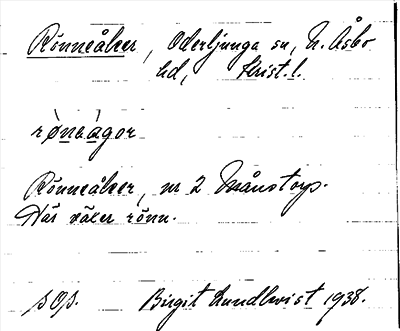 Rönneåker, Oderljunga sn, N. Åsbo
hd, Krist. l.
rònaàgor
Rönneåker, nr 2 Månstorp.
Här växer rönn.
Birgit Lundkvist 1938.